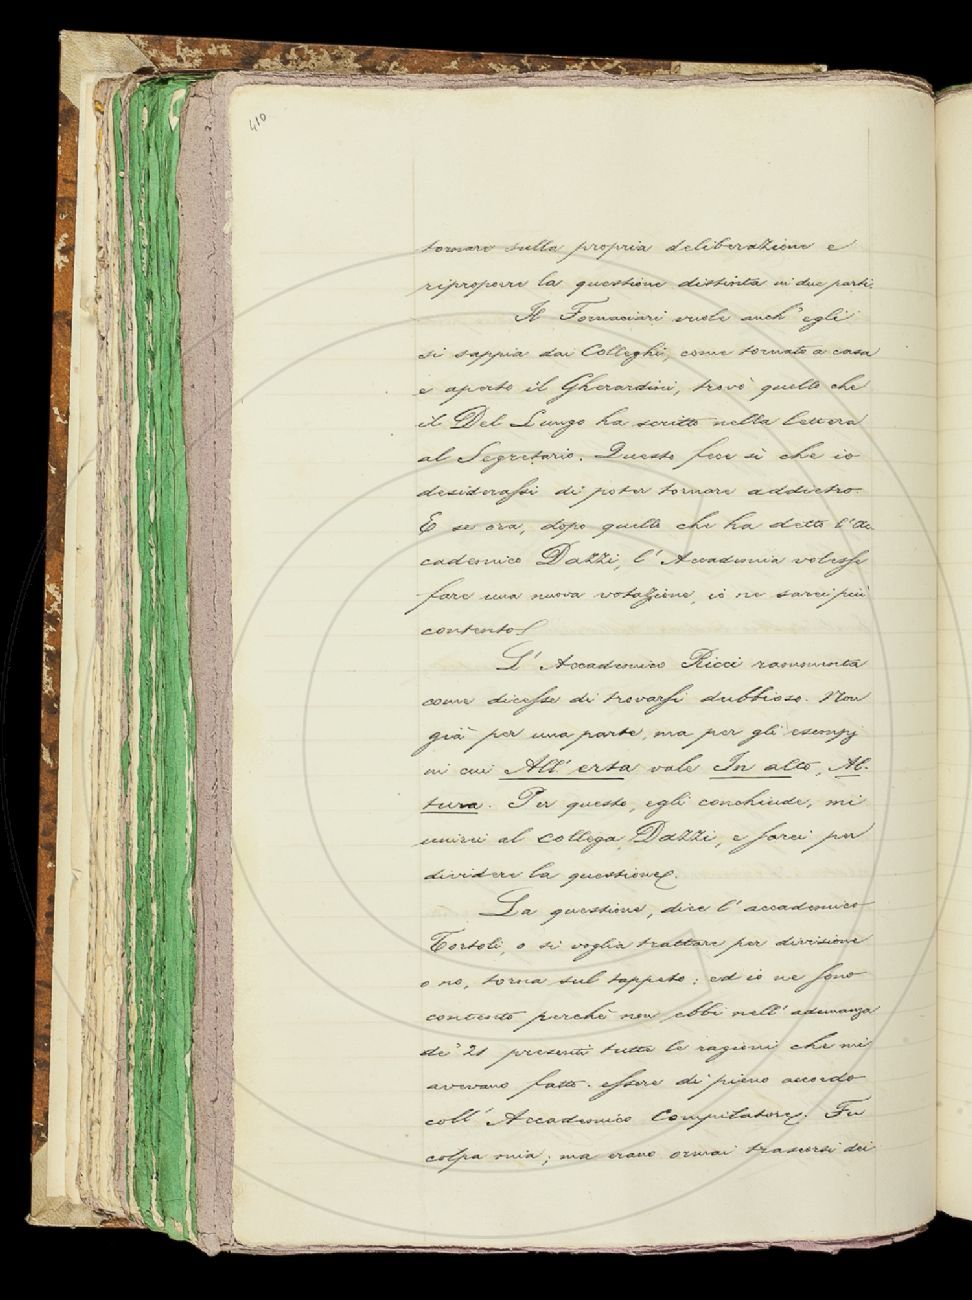 410
tornare sulla propria deliberazione e
riproporre la questione distinta in due parti.
Il Fornaciari vuole anch' egli
si sappia dai Colleghi, come tornato a casa
e aperto il Gherardini, trovò quello che
il Del Lungo ha scritto nella lettera
al Segretario. Questo fece sì che io
desiderassi di poter tornare addietro.
E se ora, dopo quello che ha detto l'Ac
cademico Dazzi, l' Accademia volesse
fare una nuova votazione, io ne sarei più
contento.
L' Accademico Ricci rammenta
come dicesse di trovarsi dubbioso. Non
già per una parte, ma per gli esempj
in cui All' erta vale In alto, Al-
tura. Per questo, egli conchiude, mi
unirei al collega Dazzi, e sarei per
dividere la questione.
La questione, dice l' accademico
Tortoli, o si voglia trattare per divisione
o no, torna sul tappeto: ed io ne sono
contento perchè non ebbi nell' adunanza
de' 21 presenti tutte le ragioni che mi
avevano fatto essere di pieno accordo
coll' Accademico Compilatore. Fu
colpa mia; ma erano ormai trascorsi dei